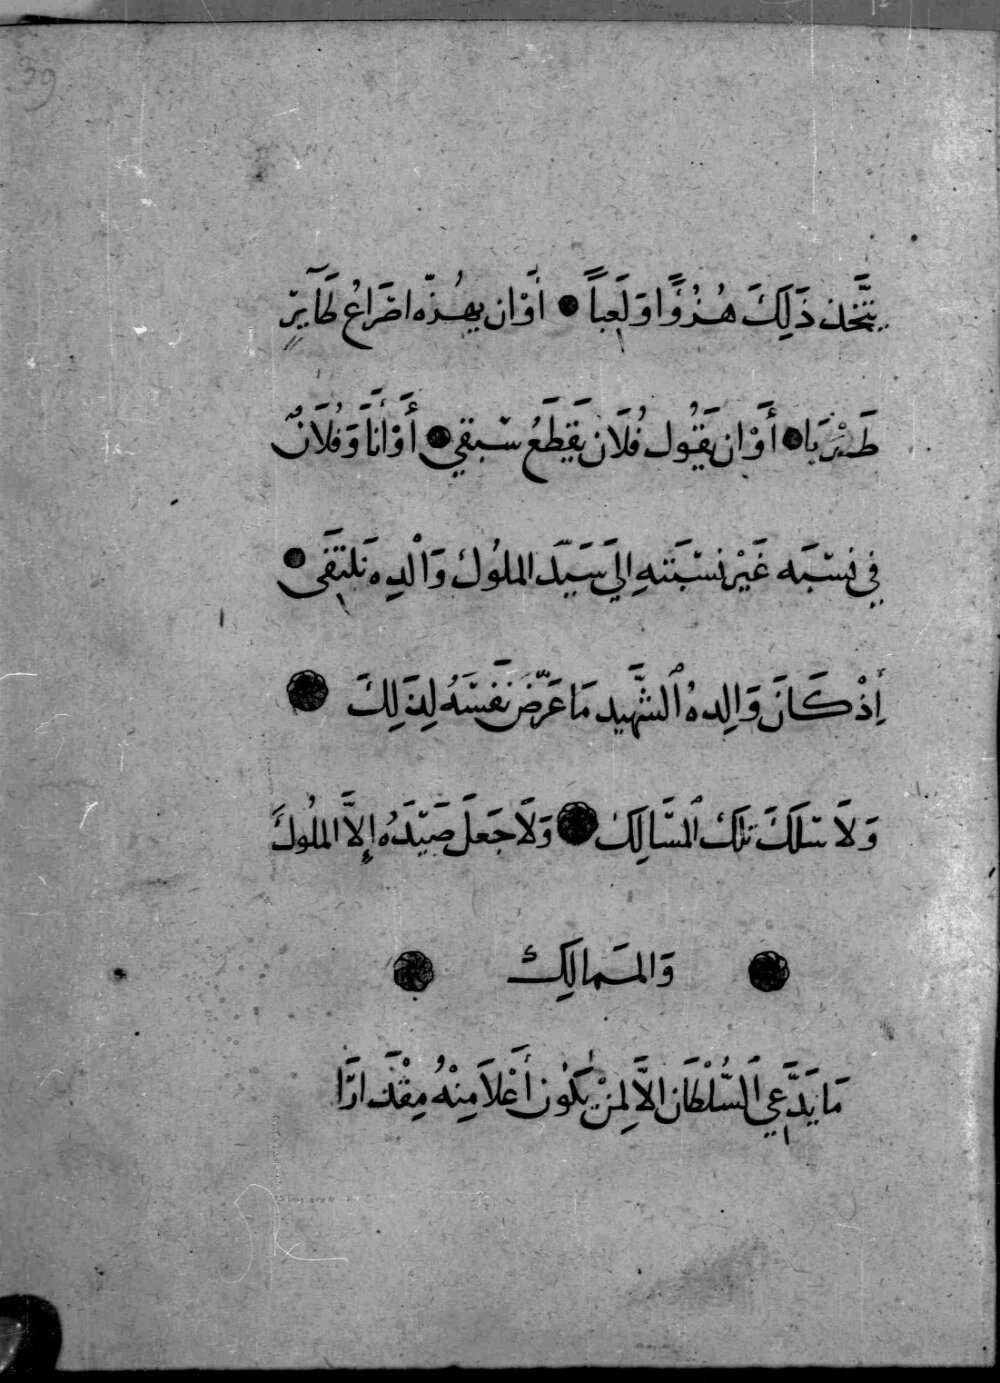 39
يَتَّخِذ ذَلِكَ هُزُوًا وَلَعِبًا ● أَوْ ان بهُذّه اضَراعُ طَآيِرٍ
طَيْر يَا ● أَوْ ان يَقُول فُلَان يَقطَعُ سبقي ● أَوْ أَنَا وَفُلَانٌ
في نسْبَه غَيْر نسْبَتهِ اليَ سَيّدَ الملُوك وَالْدِه نَلتَقَى ●
إِذْ كَانَ وَالِدهُ ٱلشَّهيد مَا عَرّضَ نَفسَهُ لِذَلِكَ
وَلَا سَلَكَ تلكَ ٱلمسَالِك وَلَا جَعلَ صَيْدَهُ إِلَّا الملُوكَ
وَالمَمالِك
مَا يَدَّعي ٱلسُّلْطَان الاَّ لِمنْ يَكُون أَعْلَا مِنْهُ مِقْدَارًا